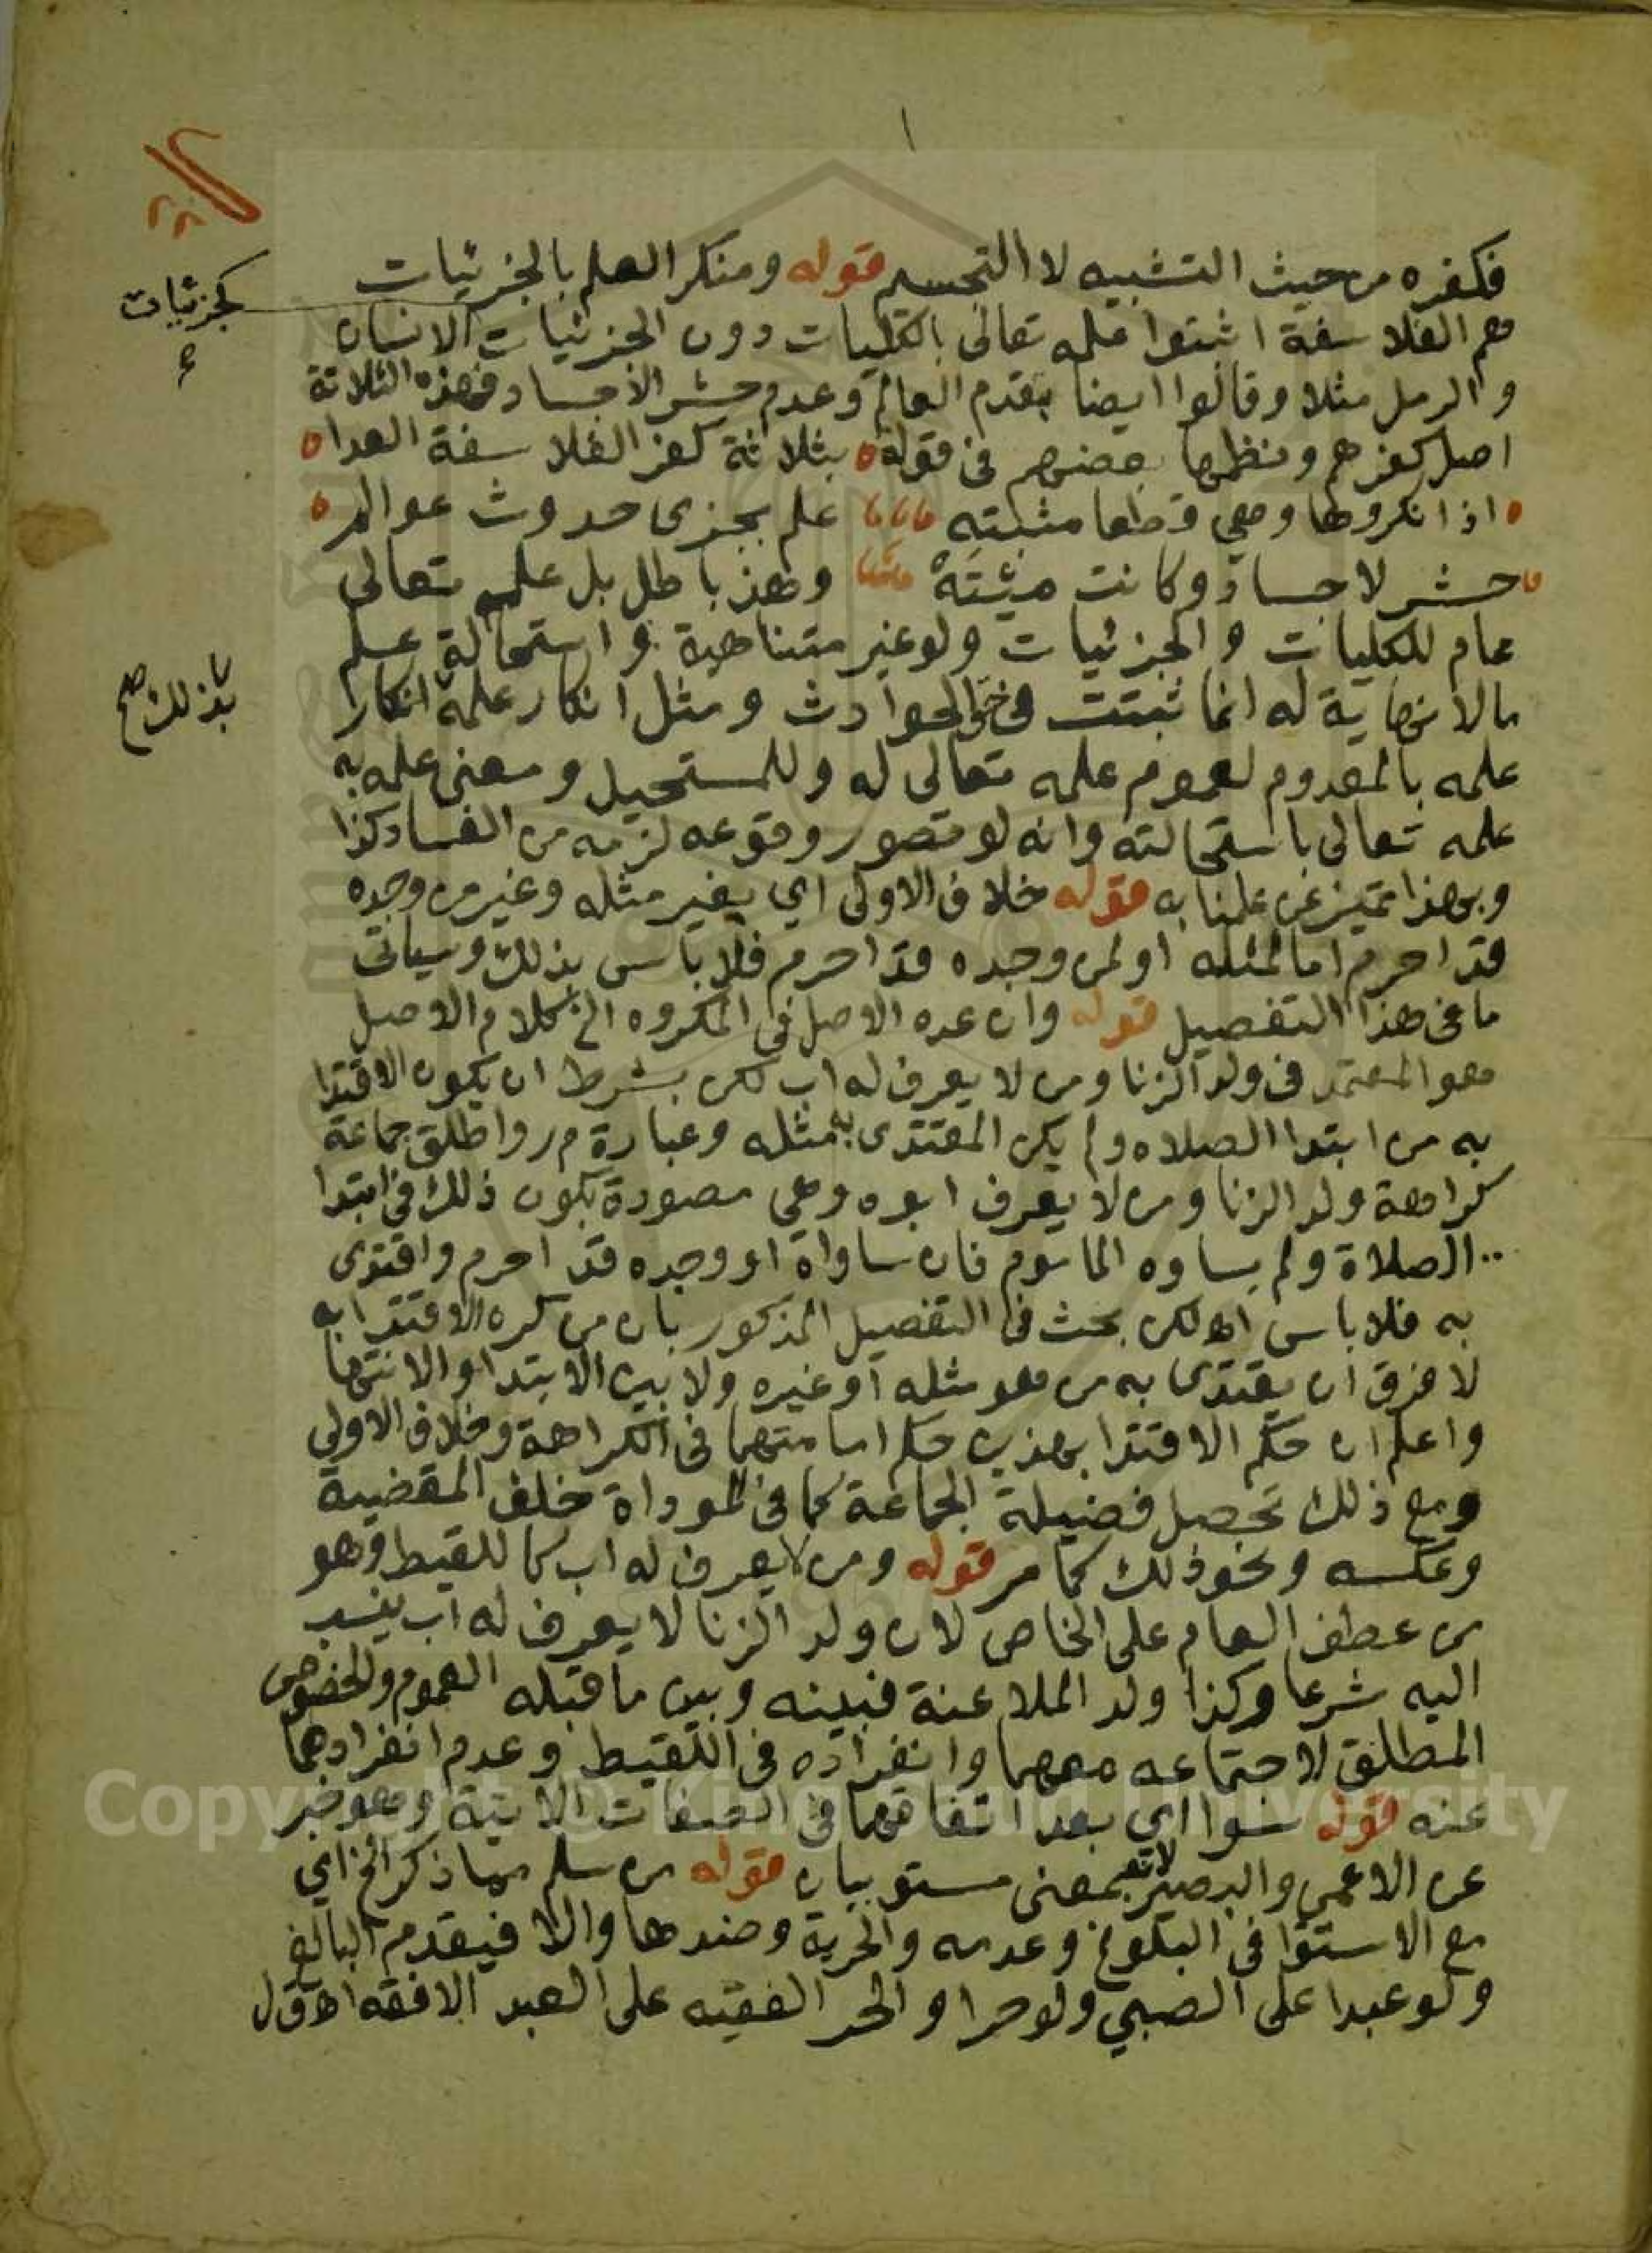 ١
فكفره من حيث التشبيه لا التجسيم قوله ومنكر العلم بالجزئيات
هم الفلاسفة اثبتوا علمه تعالى بالكليات دون الجزئيات الانسان
كجزئيات
والرمل مثلا وقالوا ايضا بقدم العالم وعدم حشر الاجساد فهذه الثلاثة
اصل كفرهم ونظمها بعضهم في قوله بثلاثة كفر الفلاسفة العدا
اذ انكروها وهي قطعا مثبته علم بجزى حدوث عوالم
حشر لاجساد وكانت ميتة وهذ باطل بل علمه تعالى
عام للكليات والجزئيات ولو غير متناهية واستحالة علم
مالا نهاية له انما ثبتت في حق الحوادث ومثل انكار علمه انكار
بذلك صح
علمه بالمعدوم لعموم علمه تعالى له وللمستحيل ومعنى علمه به
علمه تعالى باستحالته وانه لو تصور وقوعه لزمه من الفساد كذا
وبهذا تميز عن علمنا به قوله خلاف الاولى اي بغير مثله وغير من وجده
قد احرم اما لمثله او لمن وجده قد احرم فلا باس بذلك وسياتى
ما في هذا التفصيل قوله وان عده الاصل في المكروه الخ كلام الاصل
هو المعتمد في ولد الزنا ومن لا يعرف له اب لكن بشرط ان يكون الاقتدا
به من ابتدا الصلاه ولم يكن المقتدى به مثله وعبارة م ر واطلق جماعة
كراهة ولد الزنا ومن لا يعرف ابوه وهي مصورة بكون ذلك في ابتدا
الصلاة ولم يساوه الماموم فان ساواه او وجده قد احرم واقتدى
به فلا باس اه لكن بحث في التفصيل المذكور بان من كره الاقتدا به
لا فرق ان يقتدى به من هو مثله او غيره ولا بين الابتدا والانتها
واعلم ان حكم الاقتدا بهذين حكم امامتهما في الكراهة وخلاف الاولي
ومع ذلك تحصل فضيلة الجماعة كما في المؤداة خلف المقضية
وعكسه ونحو ذلك كما مر قوله ومن لا يعرف له اب كاللقيط وهو
من عطف العام على الخاص لان ولد الزنا لا يعرف له اب ينسب
اليه شرعا وكذا ولد الملاعنة فبينه وبين ما قبله العموم والخصوص
المطلق لاجتماعه معهما وانفراده في اللقيط وعدم انفرادهما
عنه قوله سوا اي بعد اتفاقهما في الصفات الاتية وهو خبر
عن الاعمى والبصير لانه بمعنى مستويان قوله من سلم مما ذكر الخ اي
مع الاستوا في البلوغ وعدمه والحرية وضدها والا فيقدم البالغ
ولو عبدا على الصبي ولو حرا والحر الفقيه على العبد الافقه اه ق ل
Copyright © King Saud University